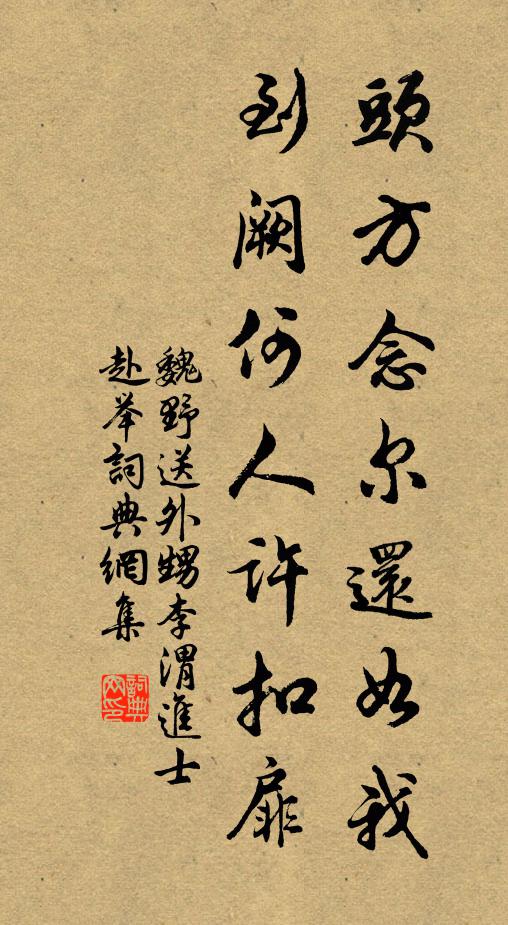 頭方念尔還如我
到闕何人許扣扉
魏野送外甥李渭進士
赴举詞典網集
詞典网印